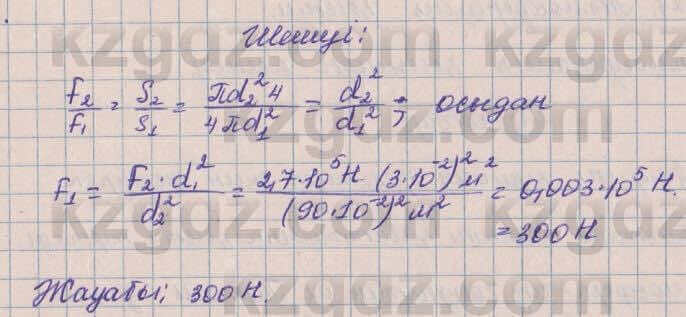 Шешуі:
F₂/F₁ = S₂/S₁ = πd₂²4/4πd₁² = d₂²/d₁²; осыдан
F₁ = F₂·d₁²/d₂² = 2,7·10⁵H (3·10⁻²)²м²/(90·10⁻²)²м² = 0,003·10⁵ H.
= 300H
Жауабы; 300H.
kzgdz.com